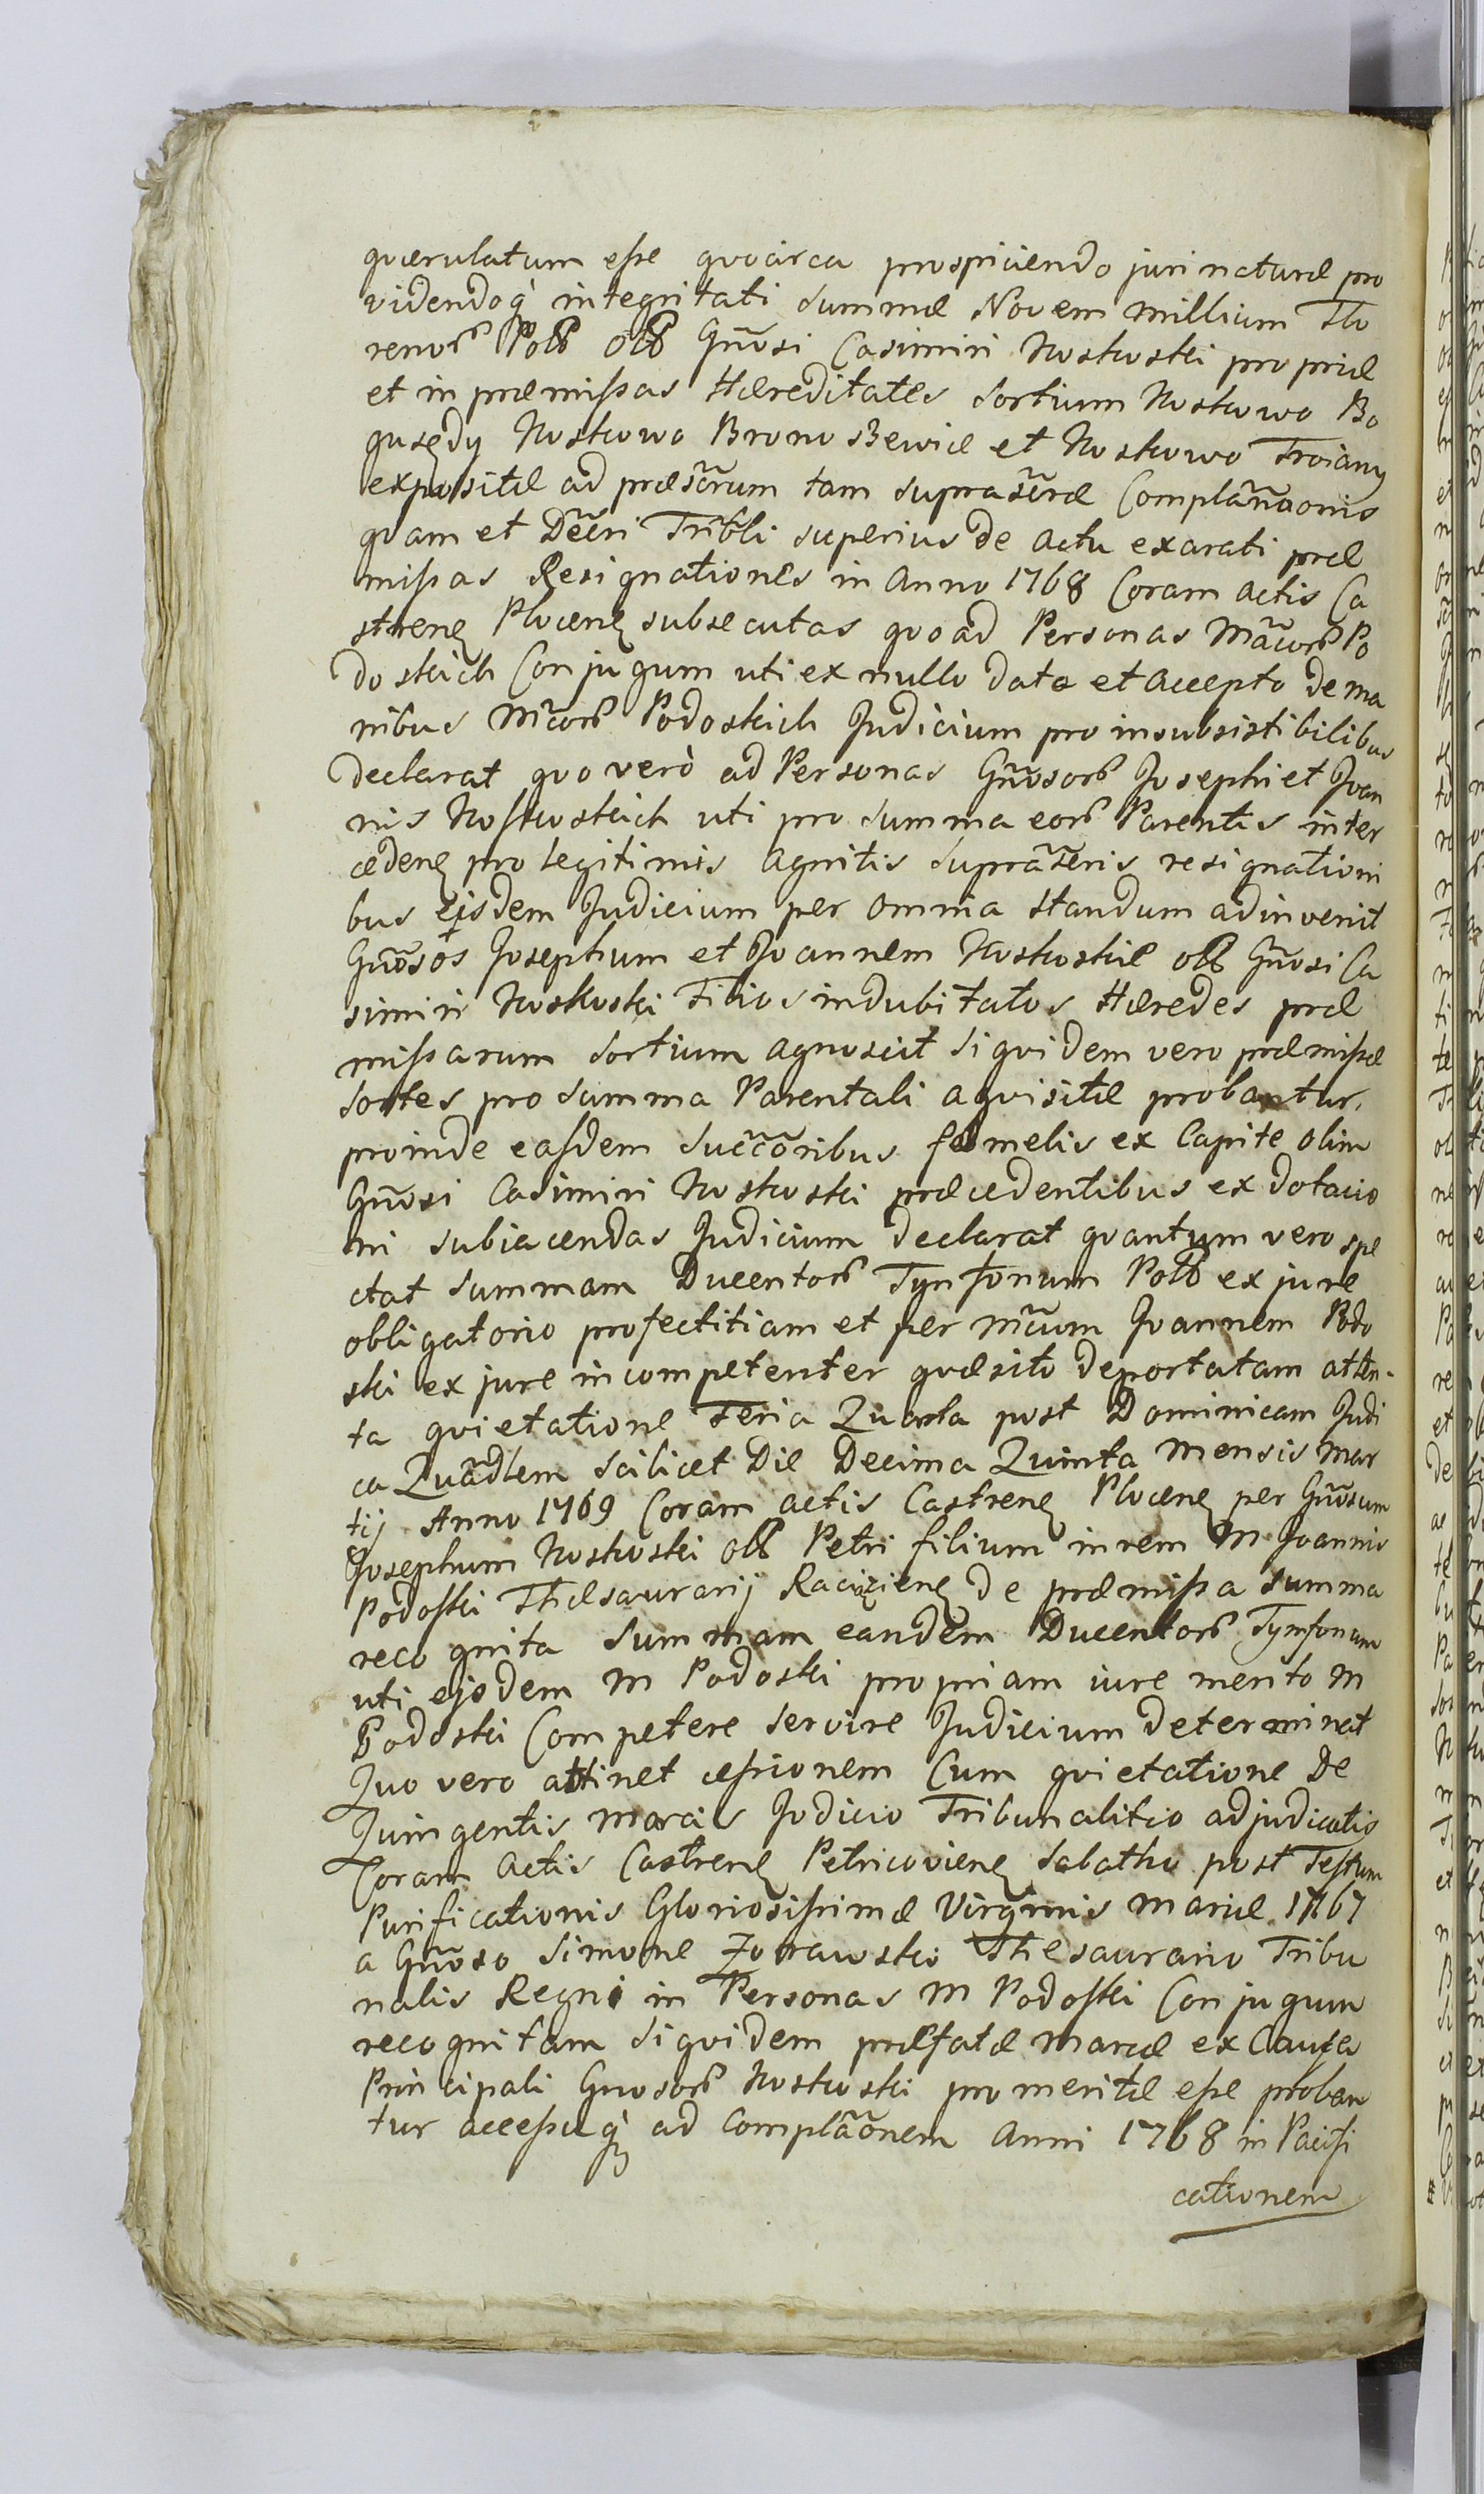 quærulatum eſse quocirca prospiciendo juri naturæ pro
videndoq̀ integritati summæ Novem millium Flo
renor̃ Poll Oll Gñosi Casimiri Noskoski propriæ
et in præmiſsas Hæreditates sortium Noskowo Bo
gusędy Noskowo Bronoszewice et Noskowo Troiany
expositæ ad præsc̃rum tam suprasc̃ræ Complãnaonis
quam et Dec̃ri Trib̃li superius de actu exarati præ
miſsas Resignationes in Anno 1768 Coram actis Ca
strenȩ Plocenȩ subsecutas quoad Personas Mãcor̃ Po
doskich Conjugum uti ex nullo dato et accepto de ma
nibus M̃cor̃ Podoskich Judicium pro insubsistibilibus
declarat quo verò ad Personas Gñosor̃ Josephi et Joan
nis Noſkoskich uti pro summa eor̃ Parentis inter
cedenȩ pro legitimis agnitis suprasc̃ris resignationi
bus ejsdem Judicium per omnia standum adinvenit
Gñosos Josephum et Joannem Noskoskie oll Gñosi Ca
simiri Noskoski Filios indubitatos Hæredes præ
miſsarum sortium agnoscit siquidem vero præmiſsæ
sortes pro summa Parentali aquisitæ probantur.
proinde easdem succ̃oribus femelis ex Capite olim
Gñosi Casimiri Noskoski præcedentibus ex dotacio
ni subiacendas Judicium declarat quantum vero spe
ctat summam Ducentor̃ Tynfonum Poll ex jure
obligatorio profectitiam et per M̃cum Joannem Podo
ski ex jure incompetenter quæsito deportatam atten-
ta quietatione Feria Quarta post Dominicam Judi
ca Quãdlem scilicet Die Decima Quinta Mensis Mar
tij Anno 1769 Coram actis Castrenȩ Plocenȩ per Gñosum
Josephum Noskoski oll Petri filium in rem M Joannis
Podoſki Thesaurarij Raciązienȩ de præmiſsa summa
recognita summam eandem Ducentor̃ Tymfonum
uti ejsdem M Podoski propriam iure merito M
Podoski Competere servire Judicium determinat
Quo vero attinet ceſsionem Cum quietatione De
Quingentis Marcis Judicio Tribunalitio adjudicatis
Coram actis Castrenȩ Petricovienȩ Sabatho post Feſtum
Purificationis Gloriosiſsimæ Virginis Mariæ 1767
a Gñoso Simone Zorawski Thesaurario Tribu
nalis Regni in Personas M Podoſki Conjugum
recognitam siquidem præfatæ Marcæ ex Causa
Principali Gnosor̃ Noskoski promeritæ eſse proban
tur acceſsuq̀ ad Complãonem Anni 1768 in Pacifi
cationem